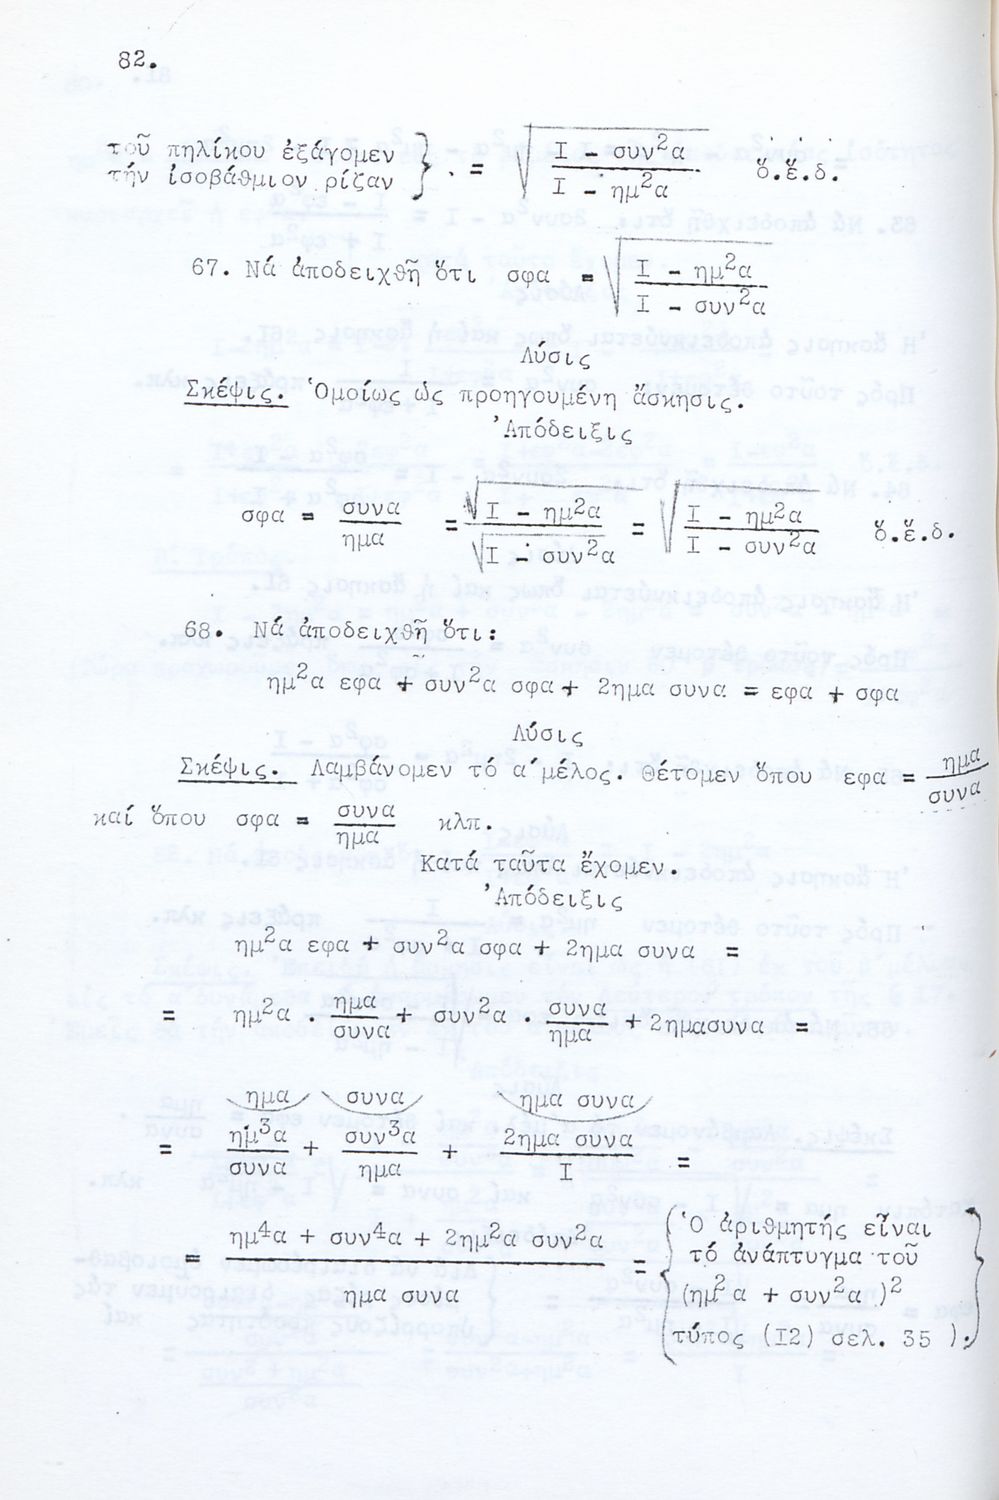 82.
τοῦ πηλίκου ἐξάγομεν
τήν ἰσοβάθμιον ρίζαν } . = √ Ι - συν²α / Ι - ημ²α ὅ.ἔ.δ.
67. Νά ἀποδειχθῆ ὅτι σφα = √ Ι - ημ²α / Ι - συν²α
Λύσις
Σκέψις. Ὁμοίως ὡς προηγουμένη ἄσκησις.
Ἀπόδειξις
σφα = συνα / ημα = √Ι - ημ²α / √Ι - συν²α = √ Ι - ημ²α / Ι - συν²α ὅ.ἔ.δ.
68. Νά ἀποδειχθῆ ὅτι:
ημ²α εφα + συν²α σφα + 2ημα συνα = εφα + σφα
Λύσις
Σκέψις. Λαμβάνομεν τό α΄μέλος. Θέτομεν ὅπου εφα = ημα / συνα
καί ὅπου σφα = συνα / ημα κλπ.
Κατά ταῦτα ἔχομεν.
Ἀπόδειξις
ημ²α εφα + συν²α σφα + 2ημα συνα =
= ημ²α . ημα / συνα + συν²α . συνα / ημα + 2ημασυνα =
ημα συνα ημα συνα
= ημ³α / συνα + συν³α / ημα + 2ημα συνα / Ι =
= ημ⁴α + συν⁴α + 2ημ²α συν²α / ημα συνα =
{ Ὁ ἀριθμητής εἶναι
τό ἀνάπτυγμα τοῦ
(ημ²α + συν²α )²
τύπος (Ι2) σελ. 35 ). }